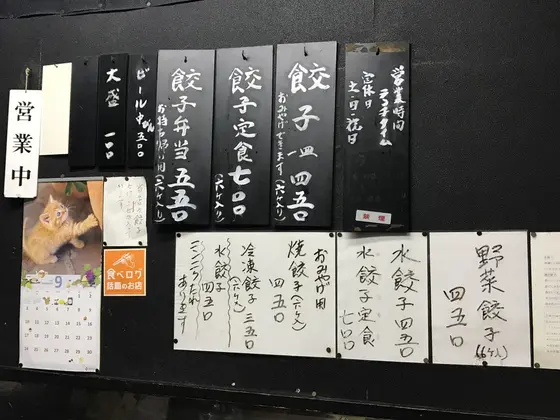 営業時間
ランチタイム
定休日
土・日・祝日
禁煙
餃子一皿四五〇
おみやげできます(六ケ入)
餃子定食七〇〇
(六ケ入)
餃子弁当五五〇
お持ち帰り用(六ケ入)
ビール中びん五〇〇
大盛一〇〇
営業中
野菜餃子(6ケ入)
四五〇
水餃子四五〇
水餃子定食
七〇〇
おみやげ用
焼餃子(六ケ入)
四五〇
冷凍餃子三五〇
(六ケ入)
水餃子
四五〇
ニンニクたれ
あります
食べログ
話題のお店
9